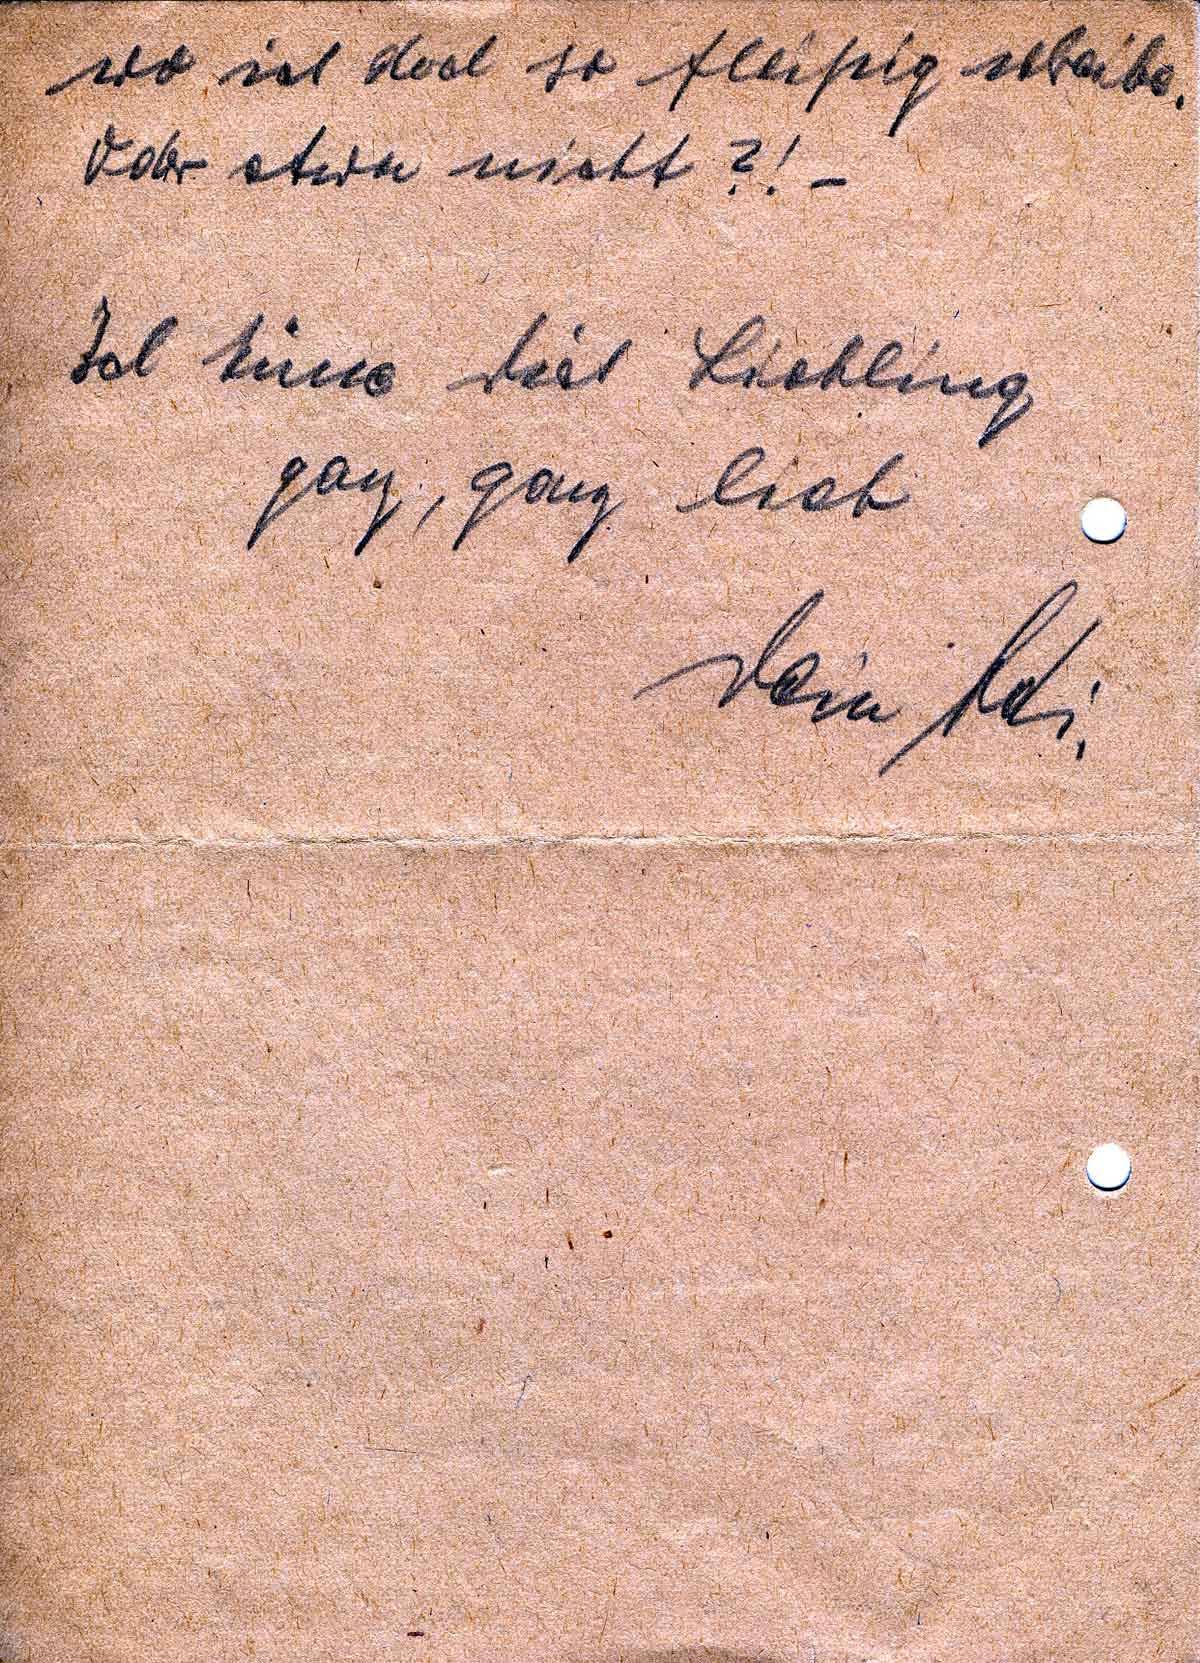 wo ich doch so fleißig schreibe.
Oder etwa nicht?! –
Ich küsse Dich Liebling
ganz, ganz lieb
Dein